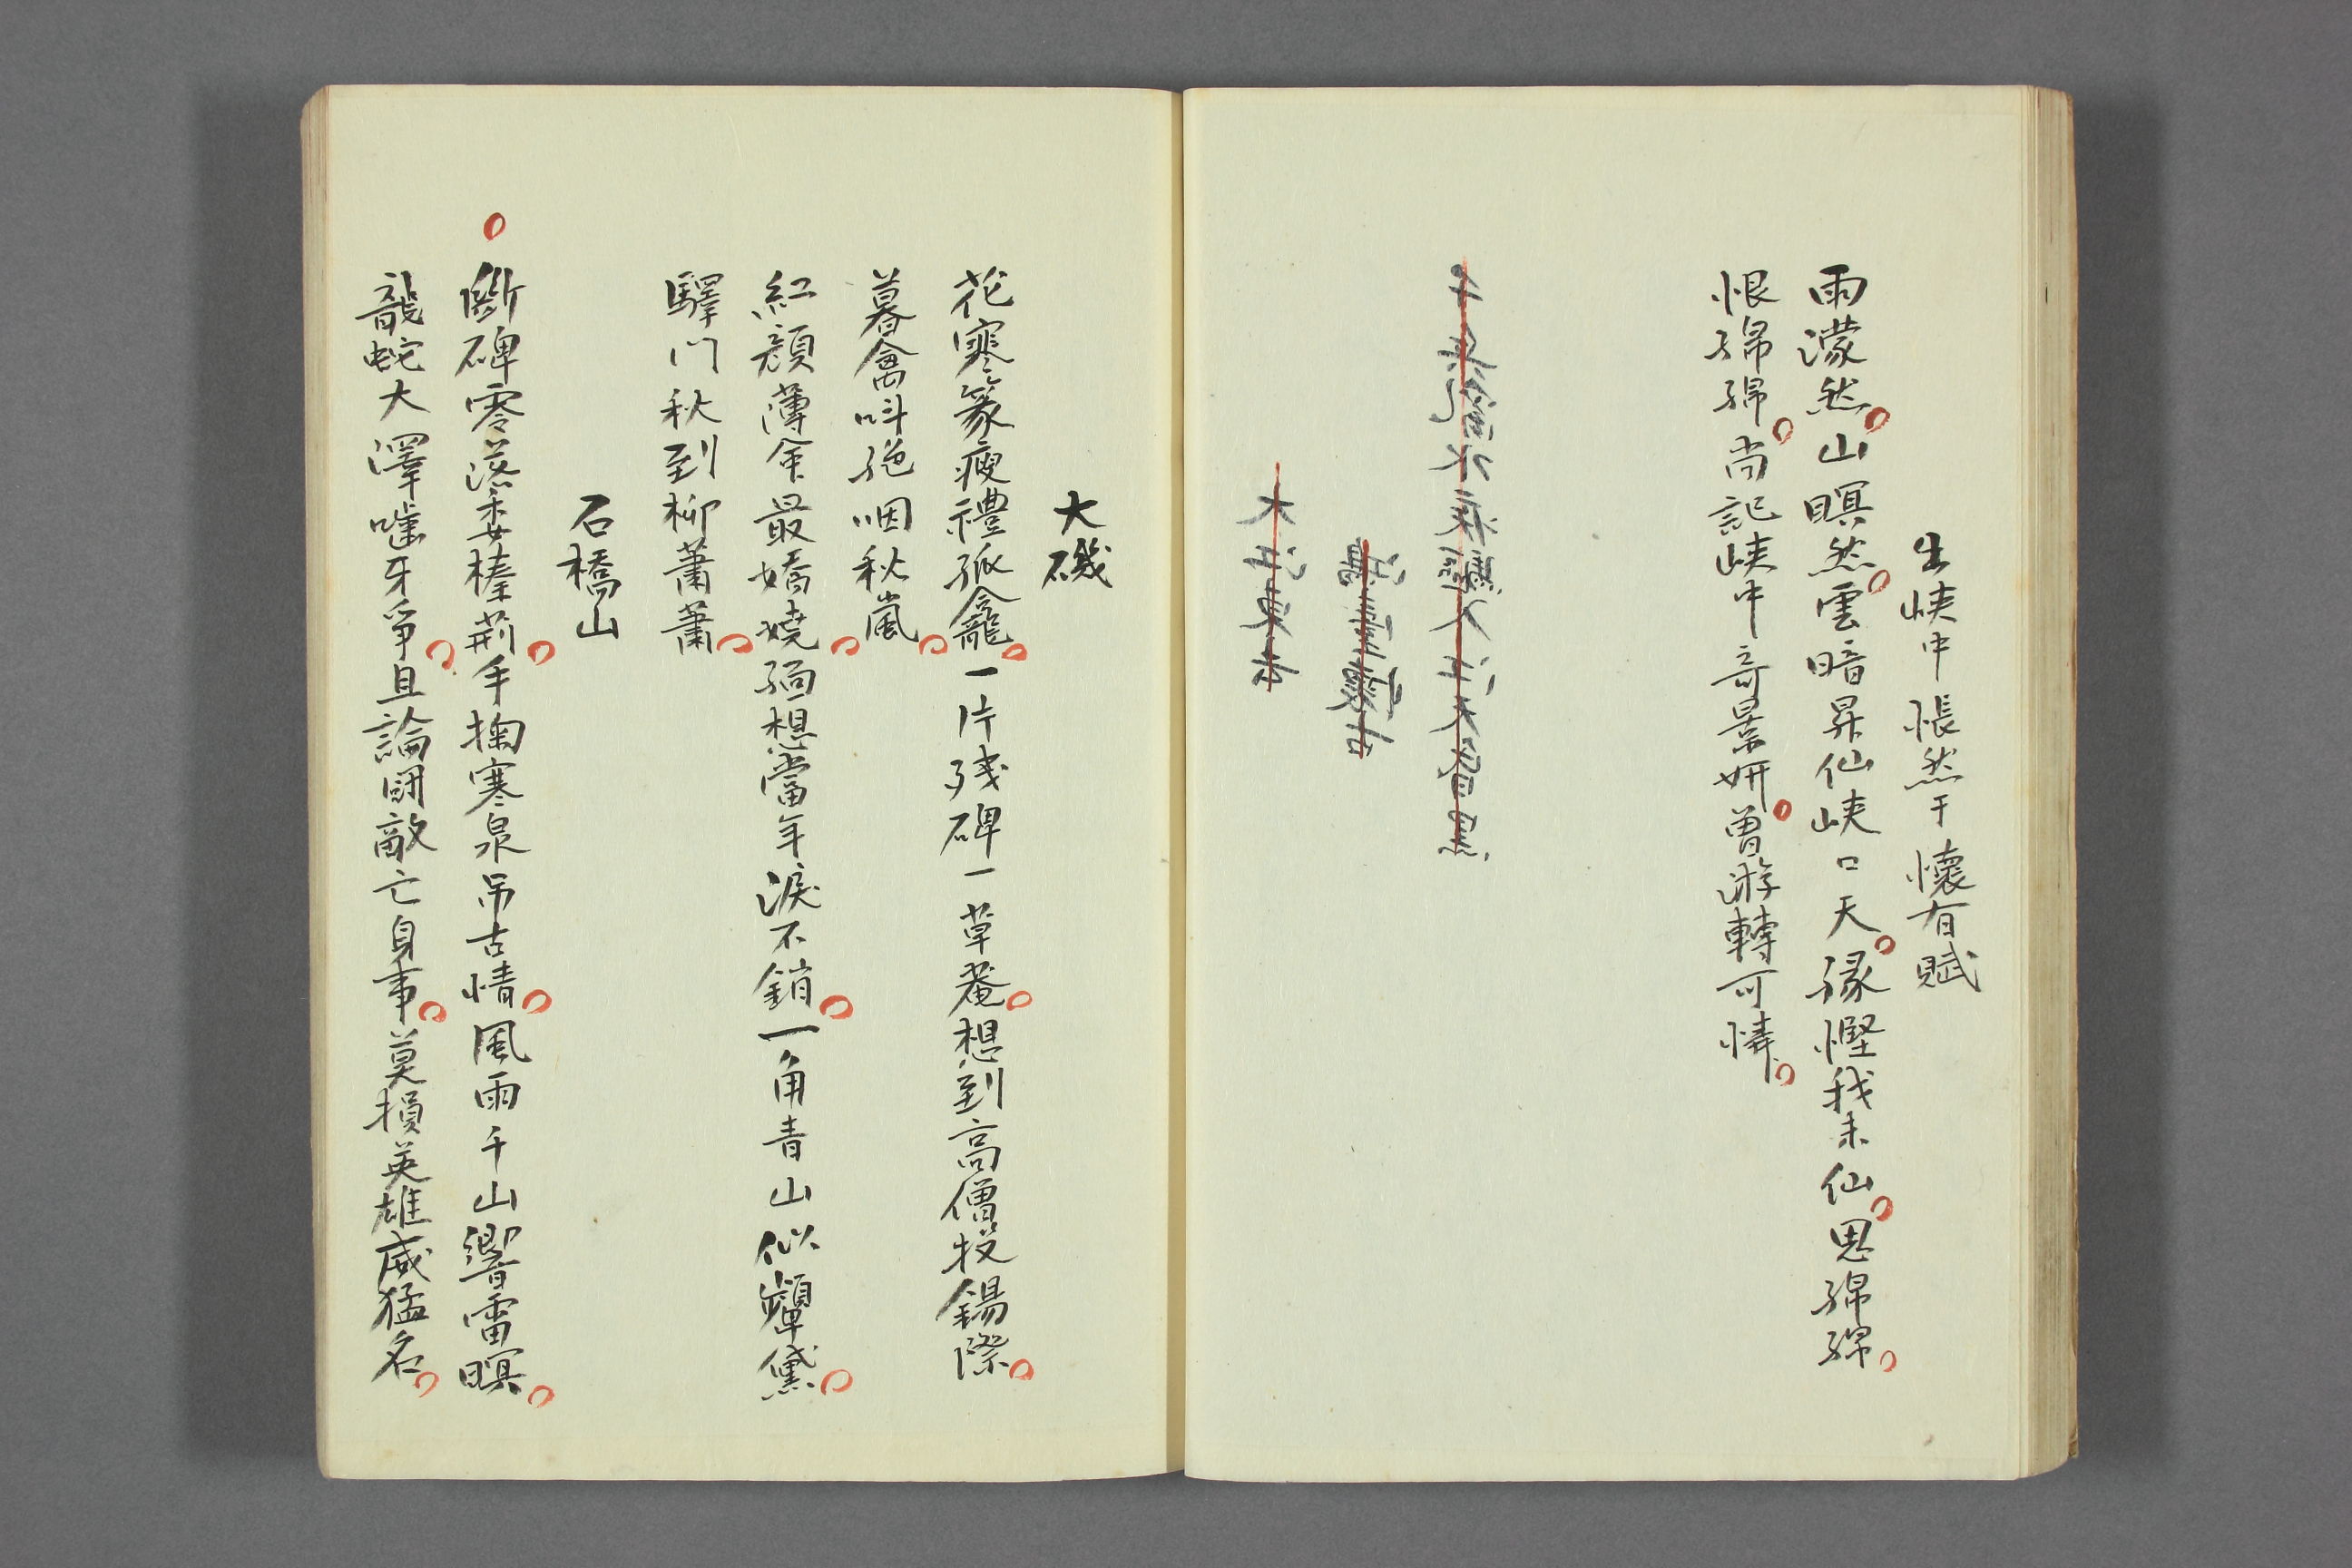 出峽中悵然于懷有賦
雨濛然山瞑然雲暗昇仙峽口天縁慳我未仙思綿綿
恨綿綿尚記峽中奇景妍曽游轉可憐
大磯
花寒篆瘦禮孤龕一片殘碑一草菴想到高僧投錫際
暮禽呌絶咽秋嵐
紅顔薄命最嬌嬈緬想當年淚不銷一角青山似顰黛
驛門秋到柳蕭蕭
石橋山
斷碑零落委榛荊手掬寒泉吊古情風雨千山響雷瞑
龍蛇大澤嗤牙爭且論鬪敵亡身事莫損英雄威猛名